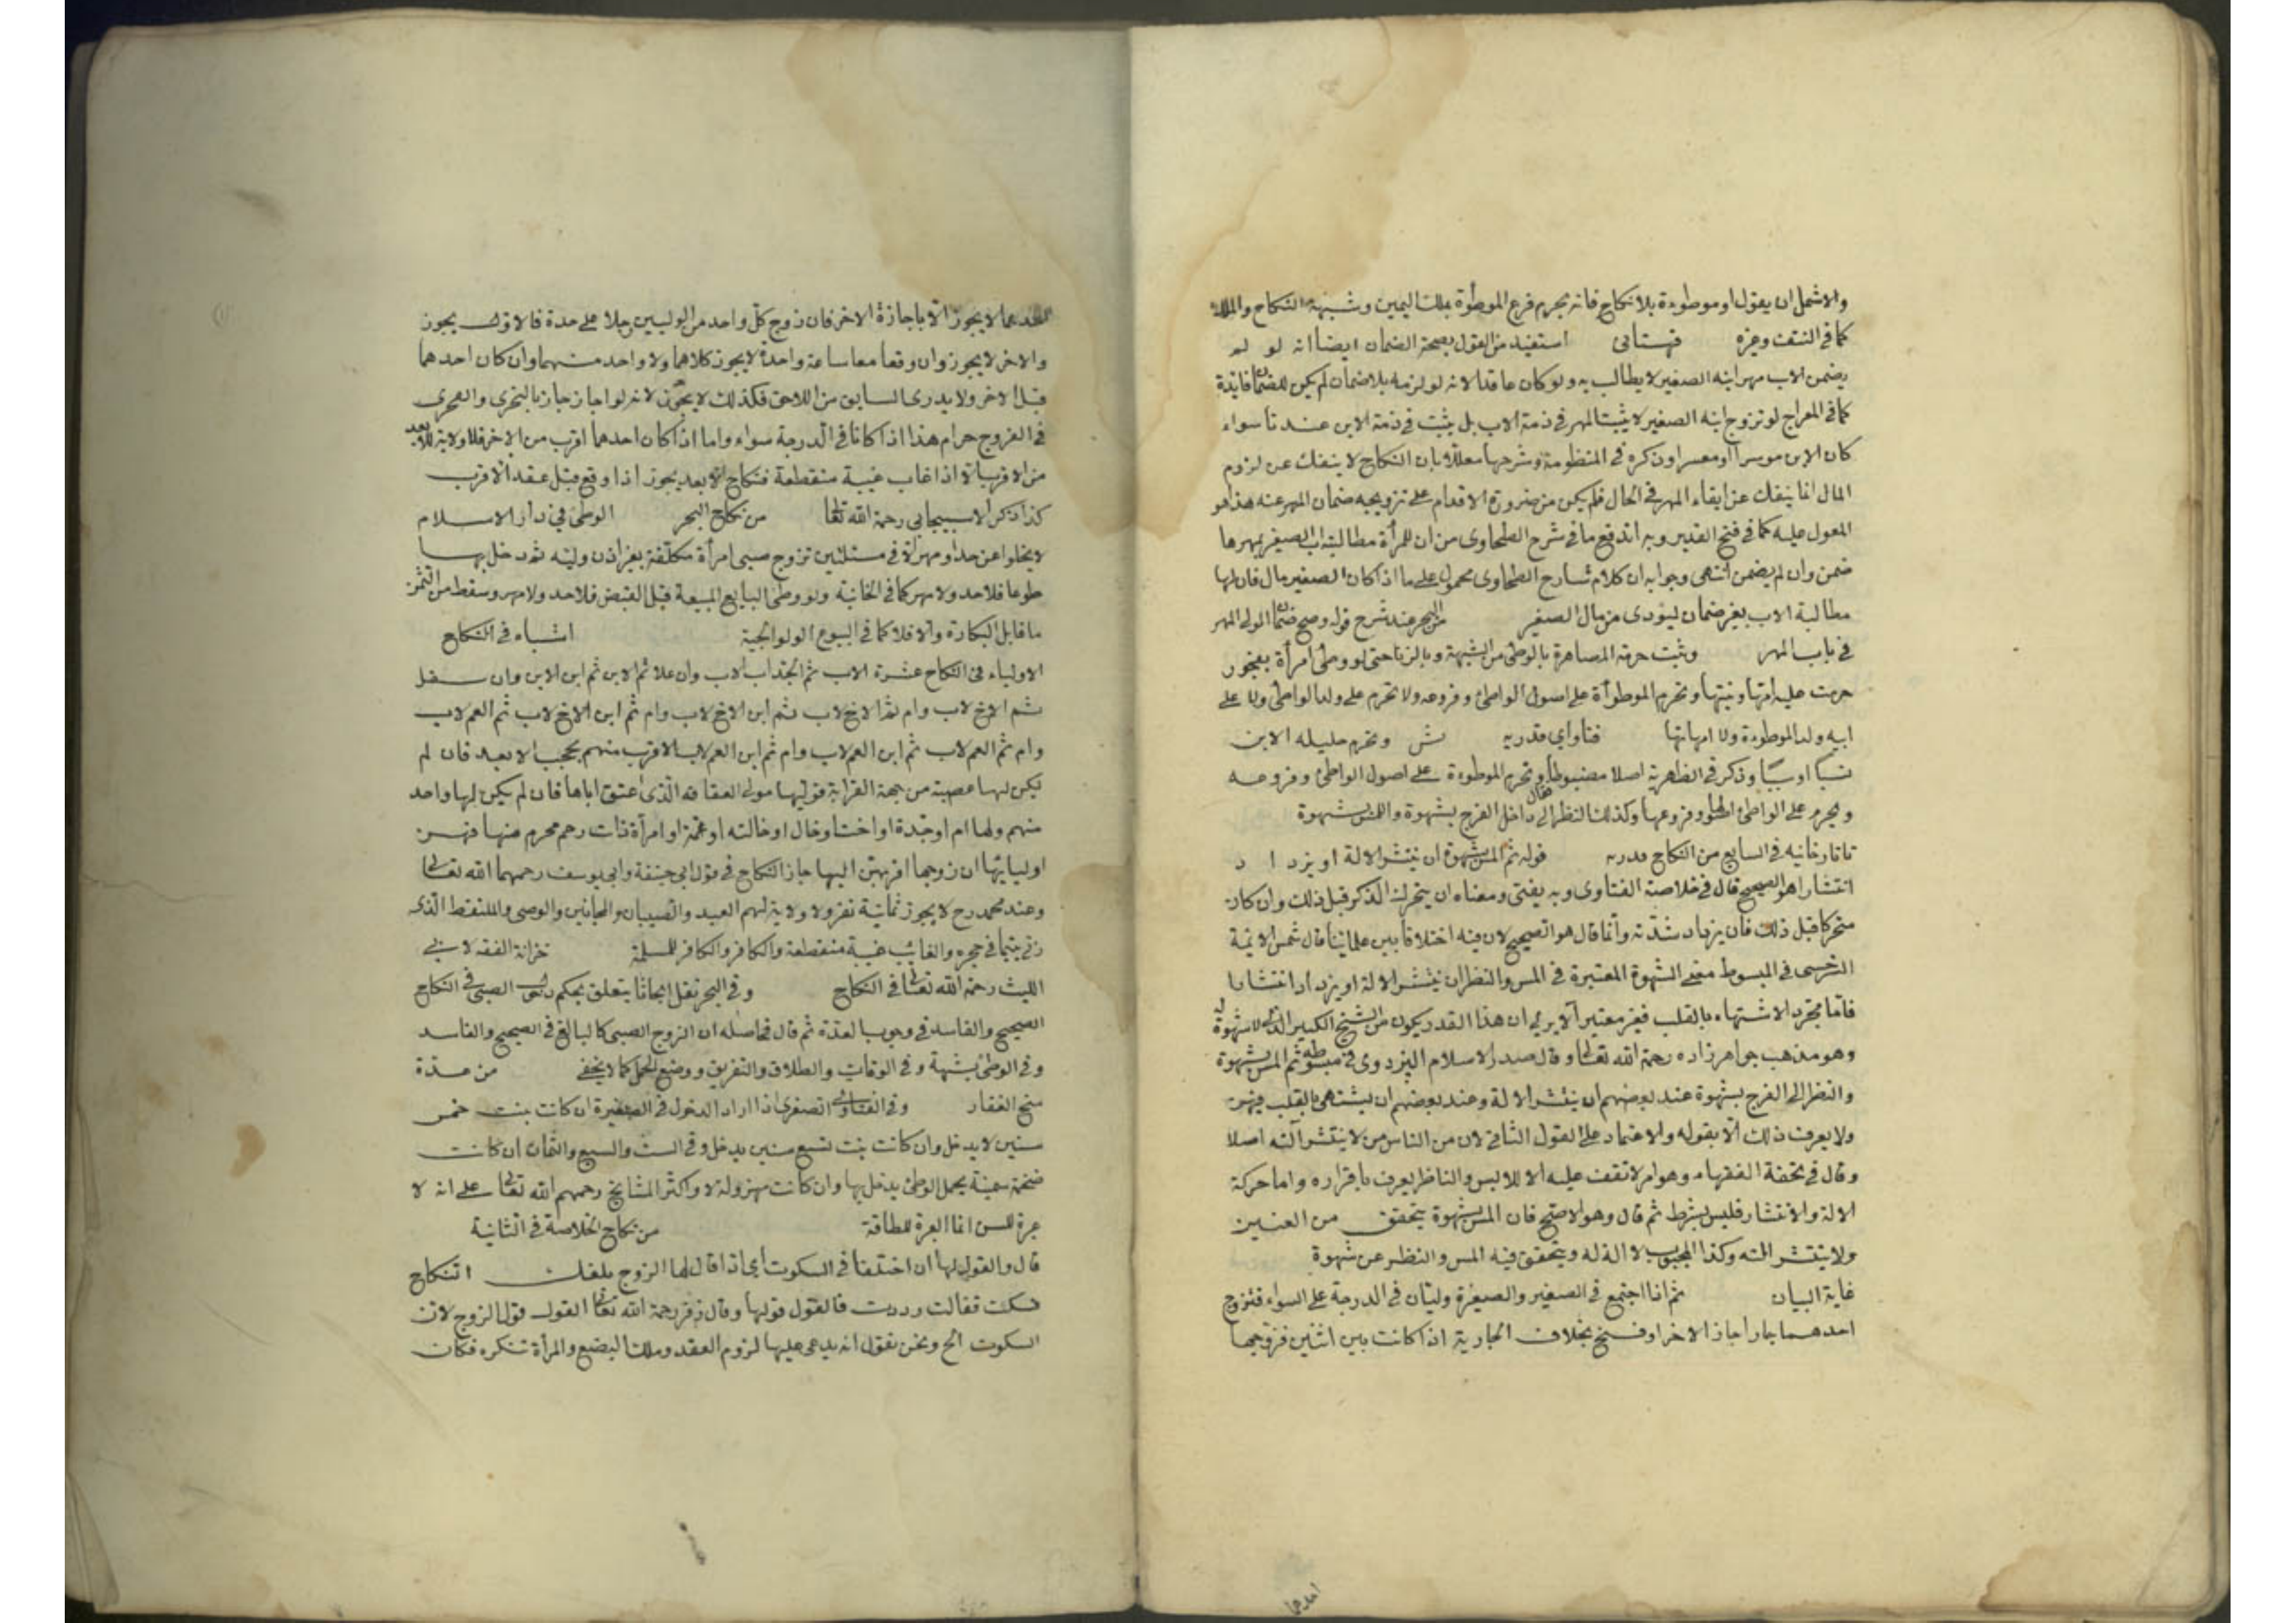 والاشمل ان يقول او موطوءة بلا نكاح فانه يحرم فرع الموطوة بملك اليمين وشبهة النكاح والملك
كما في النتف وغيره قهستاني استفيد من القول بصحة الضمان ايضا انه لو لم
يضمن الاب مهر ابنه الصغير لا يطالب به ولو كان عاقدا لانه لو لزمه بلا ضمان لم يكن للضمان فايدة
كما في المعراج لو تزوج ابنه الصغير لا يثبت المهر في ذمة الاب بل يثبت في ذمة الابن عندنا سواء
كان الابن موسرا او معسرا وذكره في المنظومة وشرحها معللا بان النكاح لا ينفك عن لزوم
المال انما ينفك عن ايفاء المهر في الحال فلم يكن من ضرورة الاقدام على تزويجه ضمان المهر عنه هذا هو
المعول عليه كما في فتح القدير وبه اندفع ما في شرح الطحاوى من ان للمرأة مطالبة اب الصغير بمهرها
ضمن وان لم يضمن انتهى وجوابه ان كلام شارح الطحاوى محمول على ما اذا كان الصغير مال فان لها
مطالبة الاب بغير ضمان ليؤدى من مال الصغير من البحر عند شرح قوله وصح ضمان الولى المهر
في باب المهر وثبت حرمة المصاهرة بالوطئ من الشبهة وبالزنا حتى لو وطئ امرأة بفجور
حرمت عليه امها وبنتها وتحرم الموطوأة على اصول الواطئ وفروعه ولا تحرم على ولد الواطئ ولا على
ابيه ولد الموطوءة ولا امهاتها فتاواى قدريه وتحرم حليلة الابن
نسبا او سببا وذكر في الظهرية اصلا مضبوطا فقال وتحرم الموطوءة على اصول الواطئ وفروعه
ويحرم على الواطئ اصولها وفروعها وكذلك النظر الى داخل الفرج بشهوة واللمس بشهوة
تاتارخانيه في السابع من النكاح قدريه قوله ثم المس بشهوة ان ينتشر الالة او يزد ا د
انتشارا هو الصحيح قال في خلاصة الفتاوى وبه يفتى ومعناه ان يتحرك الذكر قبل ذلك وان كان
متحركا قبل ذلك فان يزداد شدته وانما قال هو الصحيح لان فيه اختلافا بين علمائنا قال شمس الائمة
السرخسى في المبسوط معنى الشهوة المعتبرة في المس والنظر ان ينتشر الالة او يزداد انتشارا
فاما مجرد الاشتهاء بالقلب فغير معتبر ألا يرى ان هذا القدر يكون من الشيخ الكبير الذى لا شهوة له
وهو مذهب جواهرزاده رحمة الله تعالى وقال صدر الاسلام البزدوى في مبسوطه ثم المس بشهوة
والنظر الى الفرج بشهوة عند بعضهم ان ينتشر الالة وعند بعضهم ان يشتهى بالقلب
ولا يعرف ذلك الا بقوله والاعتماد على القول الثانى لان من الناس من لا ينتشر آلته اصلا
وقال في تحفة الفقهاء وهو امر لا تقف عليه الا اللامس والناظر يعرف باقراره واما حركة
الالة والانتشار فليس بشرط ثم قال وهو الاصح فان المس بشهوة يتحقق من العنين
ولا ينتشر الته وكذا المجبوب لا الة له ويتحقق فيه المس والنظر عن شهوة
غاية البيان ثم اذا اجتمع في الصغير والصغيرة وليان في الدرجة على السواء فتزوج
احدهما جاز اجاز الاخر او فسخ بخلاف الجارية اذا كانت بين اثنين فزوجها
احدهما
احدهما لا يجوز الا باجازة الاخر فان زوج كل واحد من الوليين رجلا على حدة فالاول يجوز
والاخر لا يجوز وان وقعا معا ساعة واحدة لا يجوز كلاهما ولا واحد منهما وان كان احدهما
قبل الاخر ولا يدرى السابق من اللاحق فكذلك لا يجوز لانه لو اجاز جاز بالتحرى والتحرى
في الفروج حرام هذا اذا كانا في الدرجة سواء واما اذا كان احدهما اقرب من الاخر فلا ولاية للابعد
من الاقرب الا اذا غاب غيبة منقطعة فنكاح الابعد يجوز اذا وقع قبل عقد الاقرب
كذا ذكر الاسبيجابى رحمة الله تعالى من نكاح البحر الوطئ في دار الاسلام
لا يخلوا عن حد او مهر الا في مسئلتين تزوج صبى امرأة مكلفة بغير اذن وليه ثم دخل بها
طوعا فلا حد ولا مهر كما في الخانية ولو وطئ البايع المبيعة قبل القبض فلا حد ولا مهر وسقط من الثمن
ما قابل البكارة والا فلا كما في البيوع الولوالجية اشباه في النكاح
الاولياء في النكاح عشرة الاب ثم الجد اب الاب وان علا ثم الابن ثم ابن الابن وان سفل
ثم الاخ لاب وام ثم الاخ لاب ثم ابن الاخ لاب وام ثم ابن الاخ لاب ثم العم لاب
وام ثم العم لاب ثم ابن العم لاب وام ثم ابن العم لاب الاقرب منهم يحجب الابعد فان لم
يكن لها عصبة من جهة القرابة فوليها مولى العتاقة الذى اعتق اباها فان لم يكن لها واحد
منهم ولها ام او جدة او اختا وخال او خالته او عمة او امرأة ذات رحم محرم منها فهن
اوليايها ان زوجها اقربهن اليها جاز النكاح في قول ابى حنيفة وابى يوسف رحمهما الله تعالى
وعند محمد رح لا يجوز ثمانية نفر ولا ولاية لهم العبيد والصبيان والمجانين والوصى والملتقط الذى
ربى يتيما في حجره والغائب غيبة منقطعة والكافر والكافر للمسلمة خزانة الفقه لابى
الليث رحمة الله تعالى في النكاح وفي البحر نقل ابحاثا يتعلق بحكم دخول الصبى في النكاح
الصحيح والفاسد في وجوب العدة ثم قال فحاصله ان الزوج الصبى كالبالغ في الصحيح والفاسد
وفي الوطئ بشبهة وفي الوفات والطلاق والتفريق ووضع الحمل كما لا يخفى من عدة
منح الغفار وفي الفتاوى الصغرى اذا اراد الدخول في الصغيرة ان كانت بنت خمس
سنين لا يدخل وان كانت بنت تسع سنين يدخل وفي الست والسبع والثمان ان كانت
ضخمة سمينة يحمل الوطئ يدخل بها وان كانت مهزولة لا واكثر المشايخ رحمهم الله تعالى على انه لا
عبرة للسن انما العبرة للطاقة من نكاح الخلاصة في الثانية
قال والقول لها ان اختلفا في السكوت اى اذا قال لها الزوج بلغك النكاح
فسكت فقالت رددت فالقول قولها وقال زفر رحمة الله تعالى القول قول الزوج لان
السكوت الخ ونحن نقول انه يدعى عليها لزوم العقد وملك البضع والمرأة تنكره فكان